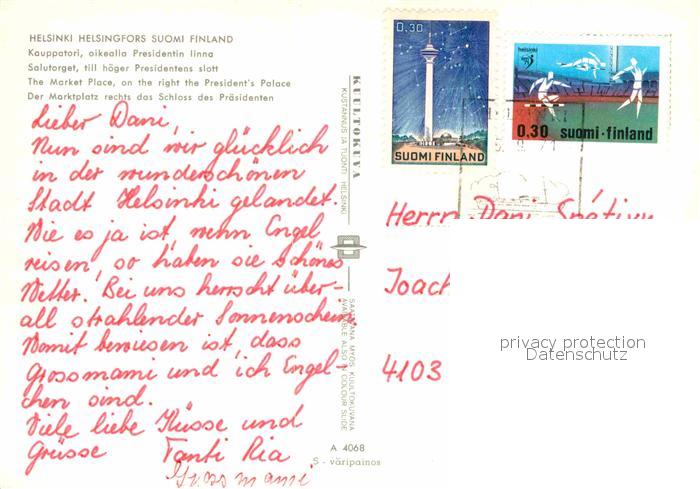 HELSINKI HELSINGFORS SUOMI FINLAND
Kauppatori, oikealla Presidentin linna
Salutorget, till höger Presidentens slott
The Market Place, on the right the President's Palace
Der Marktplatz rechts das Schloss des Präsidenten
Lieber Dani,
Nun sind wir glücklich
in der wunderschönen
Stadt Helsinki gelandet.
Wie es ja ist, wenn Engel
reisen, so haben sie schönes
Wetter. Bei uns herrscht über-
all strahlender Sonnenschein.
Womit bewiesen ist, dass
Grossmami und ich Engel-
chen sind.
Viele liebe Küsse und
Grüsse Tanti Ria
Grossmami
KUULTOKUVA
KUSTANNUS JA TUONTI HELSINKI
SAATAVANA MYÖS KUULTOKUVANA
AVAILABLE ALSO IN COLOUR SLIDE
A 4068
S - väripainos
0.30
SUOMI FINLAND
helsinki
0.30 suomi-finland
Herrn Dani
Joach
4103
privacy protection
Datenschutz